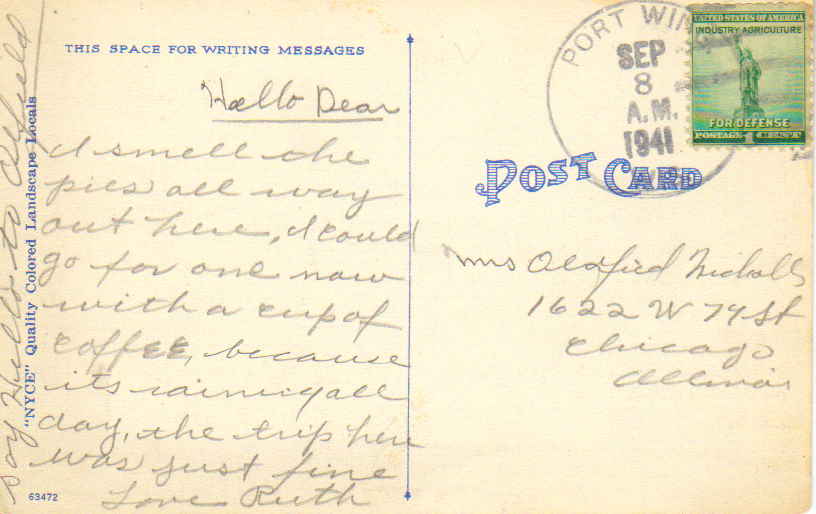 THIS SPACE FOR WRITING MESSAGES
Hello Dear
I smell the
pies all way
out here, I could
go for one now
with a cup of
coffee, because
its raining all
day, the trip here
was just fine
Love Ruth
Say Hello to
"NYCE" Quality Colored Landscape Locals
63472
PORT WING
SEP
8
A.M.
1941
UNITED STATES OF AMERICA
INDUSTRY AGRICULTURE
FOR DEFENSE
POSTAGE 1 CENT
POST CARD
Mrs Nicholls
1622 W 74 St
Chicago
Illinois